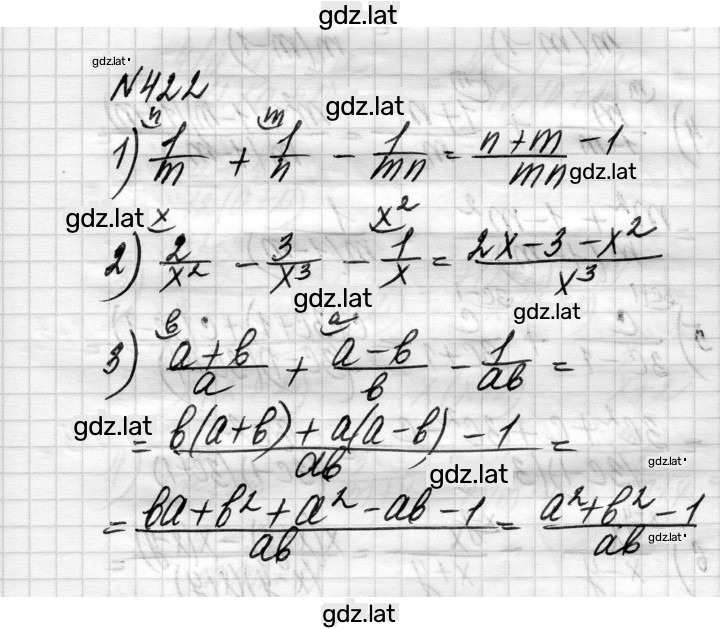 gdz.lat
gdz.lat
N422
gdz.lat
1) \frac{1}{m}^{n} + \frac{1}{n}^{m} - \frac{1}{mn} = \frac{n+m-1}{mn}
gdz.lat
gdz.lat
2) \frac{2}{x^2}^{x} - \frac{3}{x^3} - \frac{1}{x}^{x^2} = \frac{2x-3-x^2}{x^3}
gdz.lat
gdz.lat
3) \frac{a+b}{a}^{b} + \frac{a-b}{b}^{a} - \frac{1}{ab} =
gdz.lat
= \frac{b(a+b)+a(a-b)-1}{ab} =
gdz.lat
gdz.lat
= \frac{ba+b^2+a^2-ab-1}{ab} = \frac{a^2+b^2-1}{ab}
gdz.lat
gdz.lat